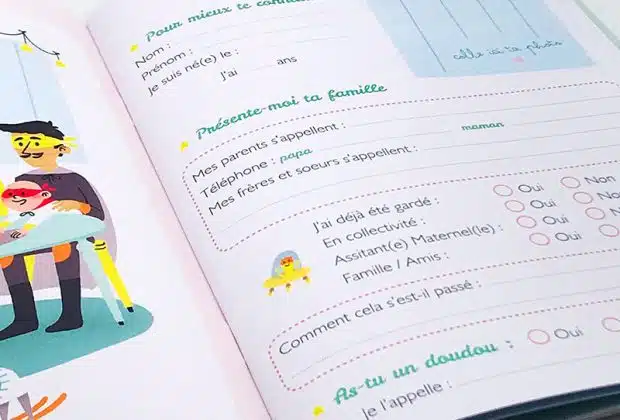 Pour mieux te
Nom :
Prénom :
Je suis né(e) le :
J'ai ans
colle ici ta photo
Présente-moi ta famille
Mes parents s'appellent :
Téléphone : papa maman
Mes frères et soeurs s'appellent :
J'ai déjà été gardé : Oui Non
En collectivité : Oui
Assitant(e) Maternel(le) : Oui
Famille / Amis : Oui
Comment cela s'est-il passé :
As-tu un doudou : Oui
Je l'appelle :